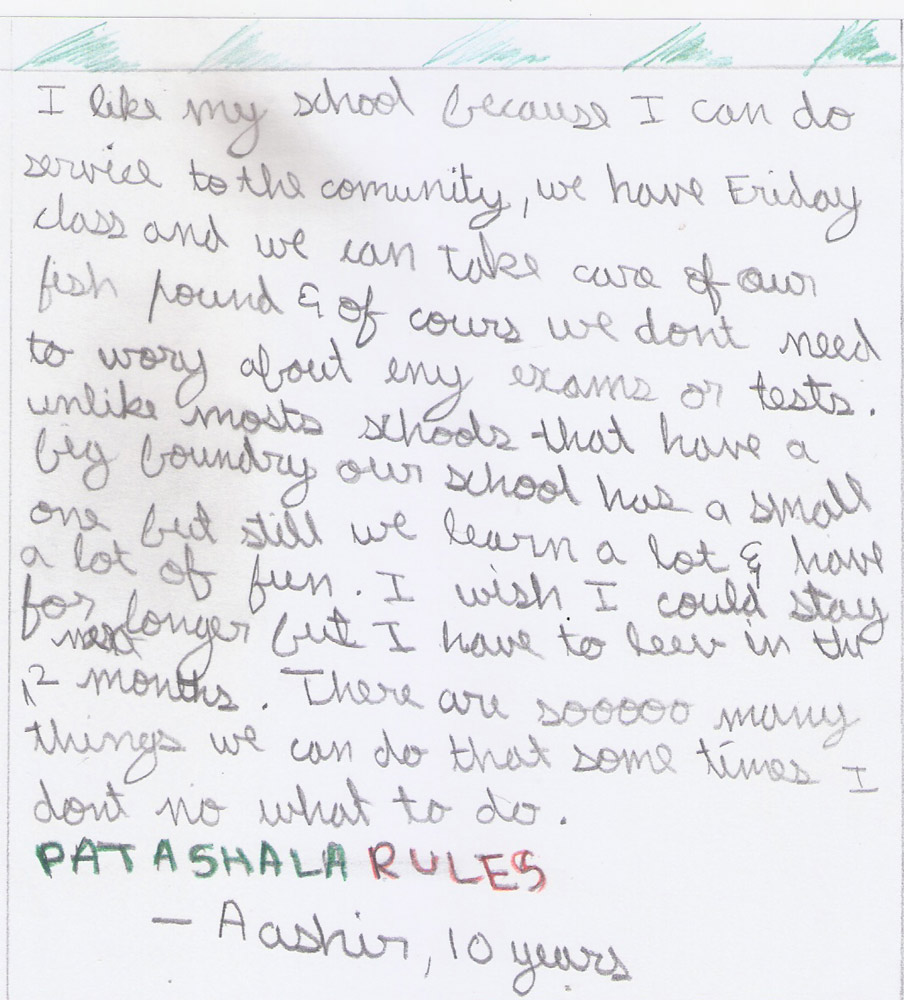 I like my school because I can do
service to the comunity, we have Friday
class and we can take care of our
fish pound & of cours we dont need
to wory about eny exams or tests.
unlike mosts schools that have a
big boundry our school has a small
one but still we learn a lot & have
a lot of fun. I wish I could stay
for longer but I have to leev in the
next
2 months. There are sooooo many
things we can do that some times I
dont no what to do.
PATASHALA RULES
— Aashir, 10 years